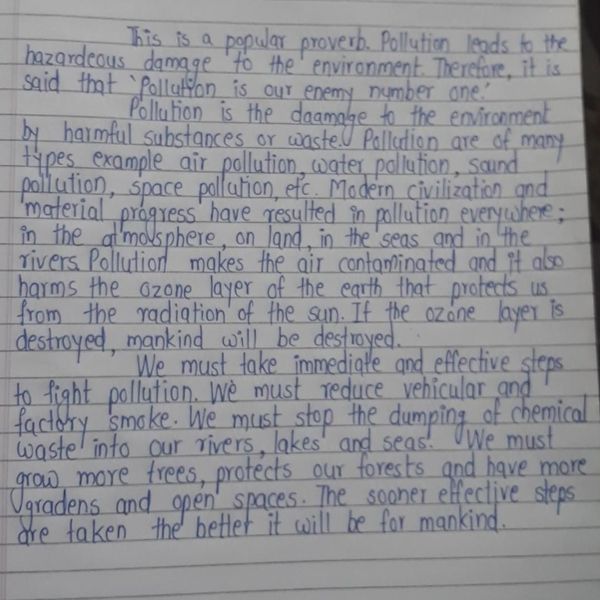 This is a popular proverb. Pollution leads to the
hazardeous damage to the environment. Therefore, it is
said that 'Pollution is our enemy number one.'
Pollution is the daamage to the environment
by harmful substances or waste. Pollution are of many
types example air pollution, water pollution, sound
pollution, space pollution, etc. Modern civilization and
material progress have resulted in pollution everywhere;
in the atmosphere, on land, in the seas and in the
rivers. Pollution makes the air contaminated and it also
harms the ozone layer of the earth that protects us
from the radiation of the sun. If the ozone layer is
destroyed, mankind will be destroyed.
We must take immediate and effective steps
to fight pollution. We must reduce vehicular and
factory smoke. We must stop the dumping of chemical
waste into our rivers, lakes and seas. We must
grow more trees, protects our forests and have more
gradens and open spaces. The sooner effective steps
are taken the better it will be for mankind.